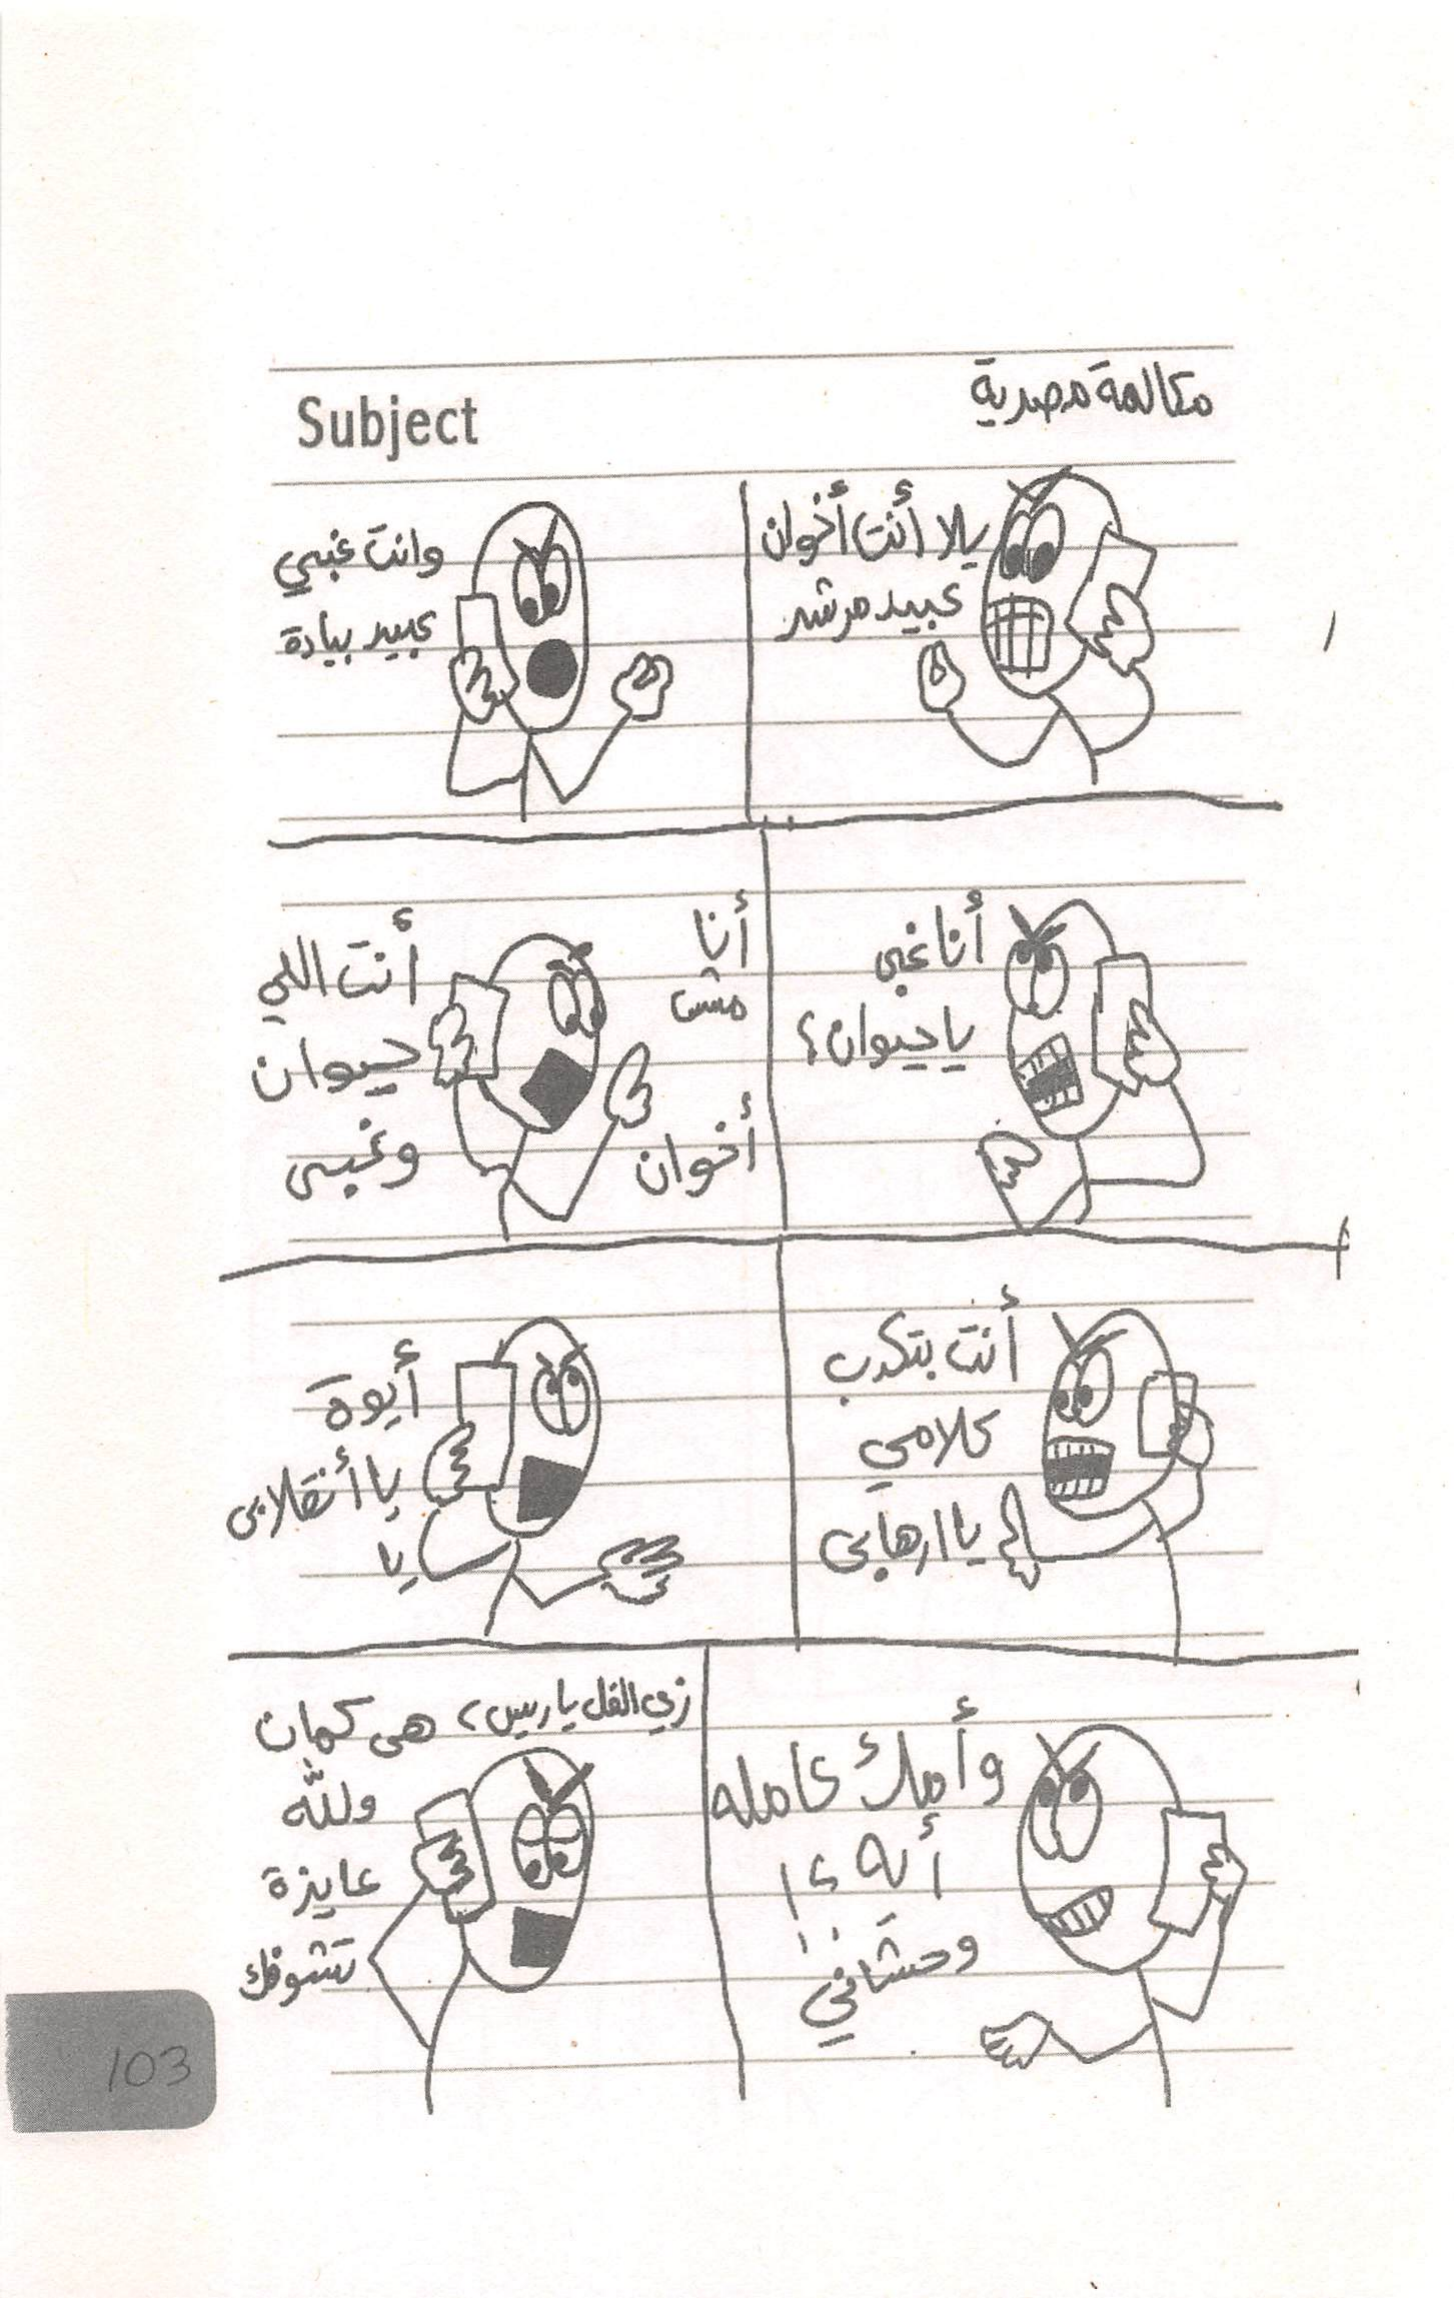 مكالمة مصرية
Subject
يالا أنت أخوان
عبيد مرشد
وانت غبي
عبيد بيادة
أنا غبي
يا حيوان؟
أنا
مش
أخوان
أنت اللي
حيوان
وغبى
أنت بتكدب
كلامي
يا ارهابى
أيوة
يا أنقلابى
يا
وأمك عامله
أيه؟!
وحشاني
زي الفل يا ريس، هى كمان
وللّه
عايزة
تشوفك
103